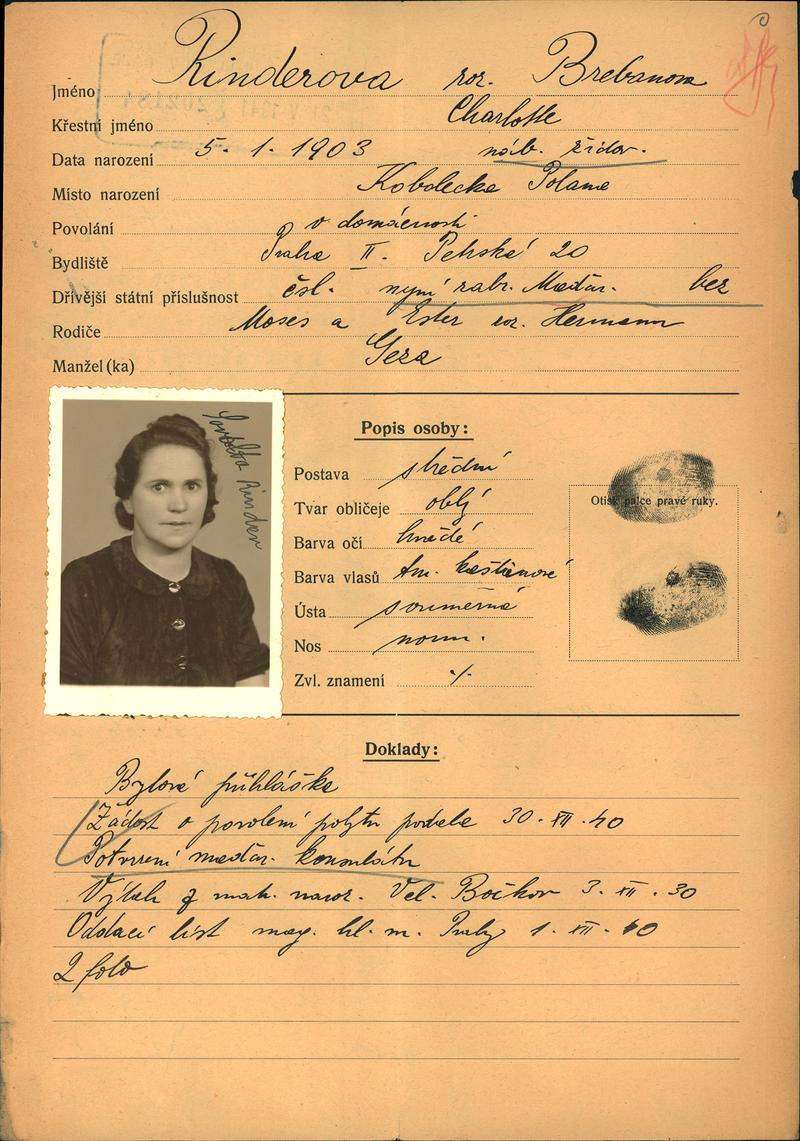 Jméno Rinderova roz. Brebanova
Křestní jméno Charlotte
Data narození 5. 1. 1903 náb. židov.
Místo narození Kobolecka Polana
Povolání v domácnosti
Bydliště Praha II. Petrská 20
Dřívější státní příslušnost čsl. nyní zabr. Maďar. bez
Rodiče Moses a Ester roz. Hermann
Manžel (ka) Geza
Rinder
Popis osoby:
Postava střední
Tvar obličeje oblý
Barva očí hnědé
Barva vlasů tm. kaštanové
Ústa souměrná
Nos norm.
Zvl. znamení ./.
Otisk palce pravé ruky.
Doklady:
Bytová přihláška
Žádost o povolení pobytu podala 30. XII. 40
Potvrzení maďar. konsulátu
Výtah z mat. naroz. Vel. Bočkov 3. XII. 30
Oddací list mag. hl. m. Prahy 1. XII. 40
2 foto